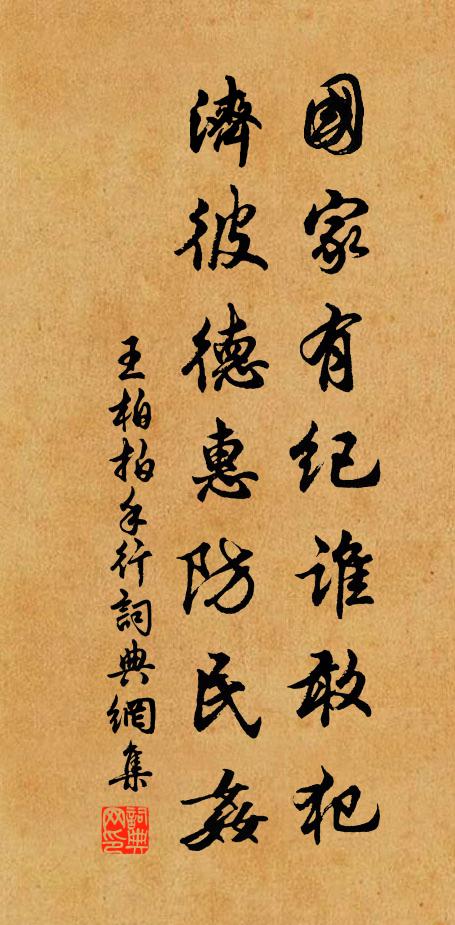 國家有纪誰敢犯
濟彼德惠防民姦
王柏拍手行詞典網集
詞典網印